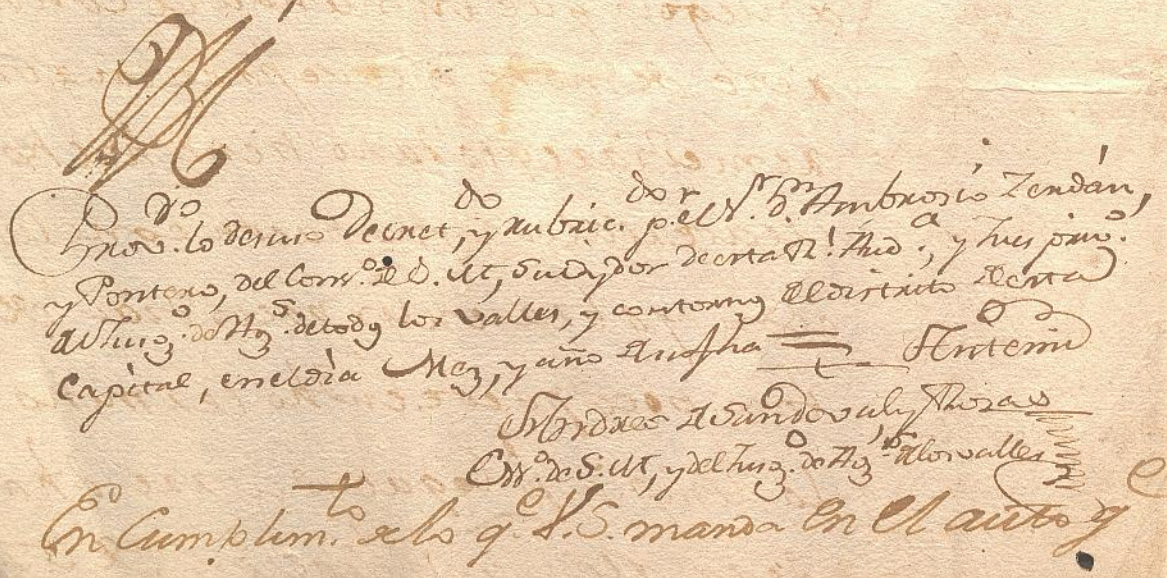 Prov.do lo desuso Decret.do, y rubric.do p.r el S.r D.n Ambrosio Zendán,
y Pontero, del Cons.o de S. M, Su oydor de esta R.l Aud.a, y Jues priv.o
del Jusg.o de Ag.s de todos los valles, y contornos del distrito de esta
Capital, en el dia Mes, y año de su fha = Antemi
Andres de Sandoval, y
Ess.o de S. M, y del Jusg.o de Ag.s de los valles
En Cumplim.to de lo q.e V. S. manda en el auto q